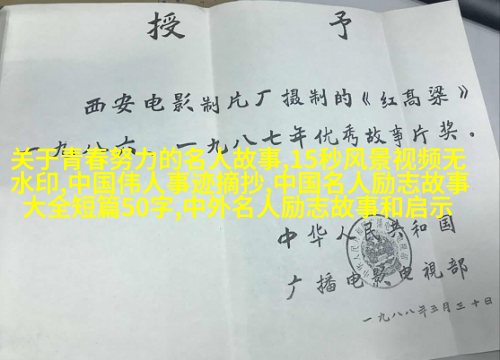 授 予
西安电影制片厂摄制的《红高粱》
一九八六 — 一九八七年优秀故事片奖。
关于青春努力的名人故事,15秒风景视频无
水印,中国伟人事迹摘抄,中国名人励志故事
大全短篇50字,中外名人励志故事和启示
中华人民共和国
广播电影电视部
一九八八年三月三十日